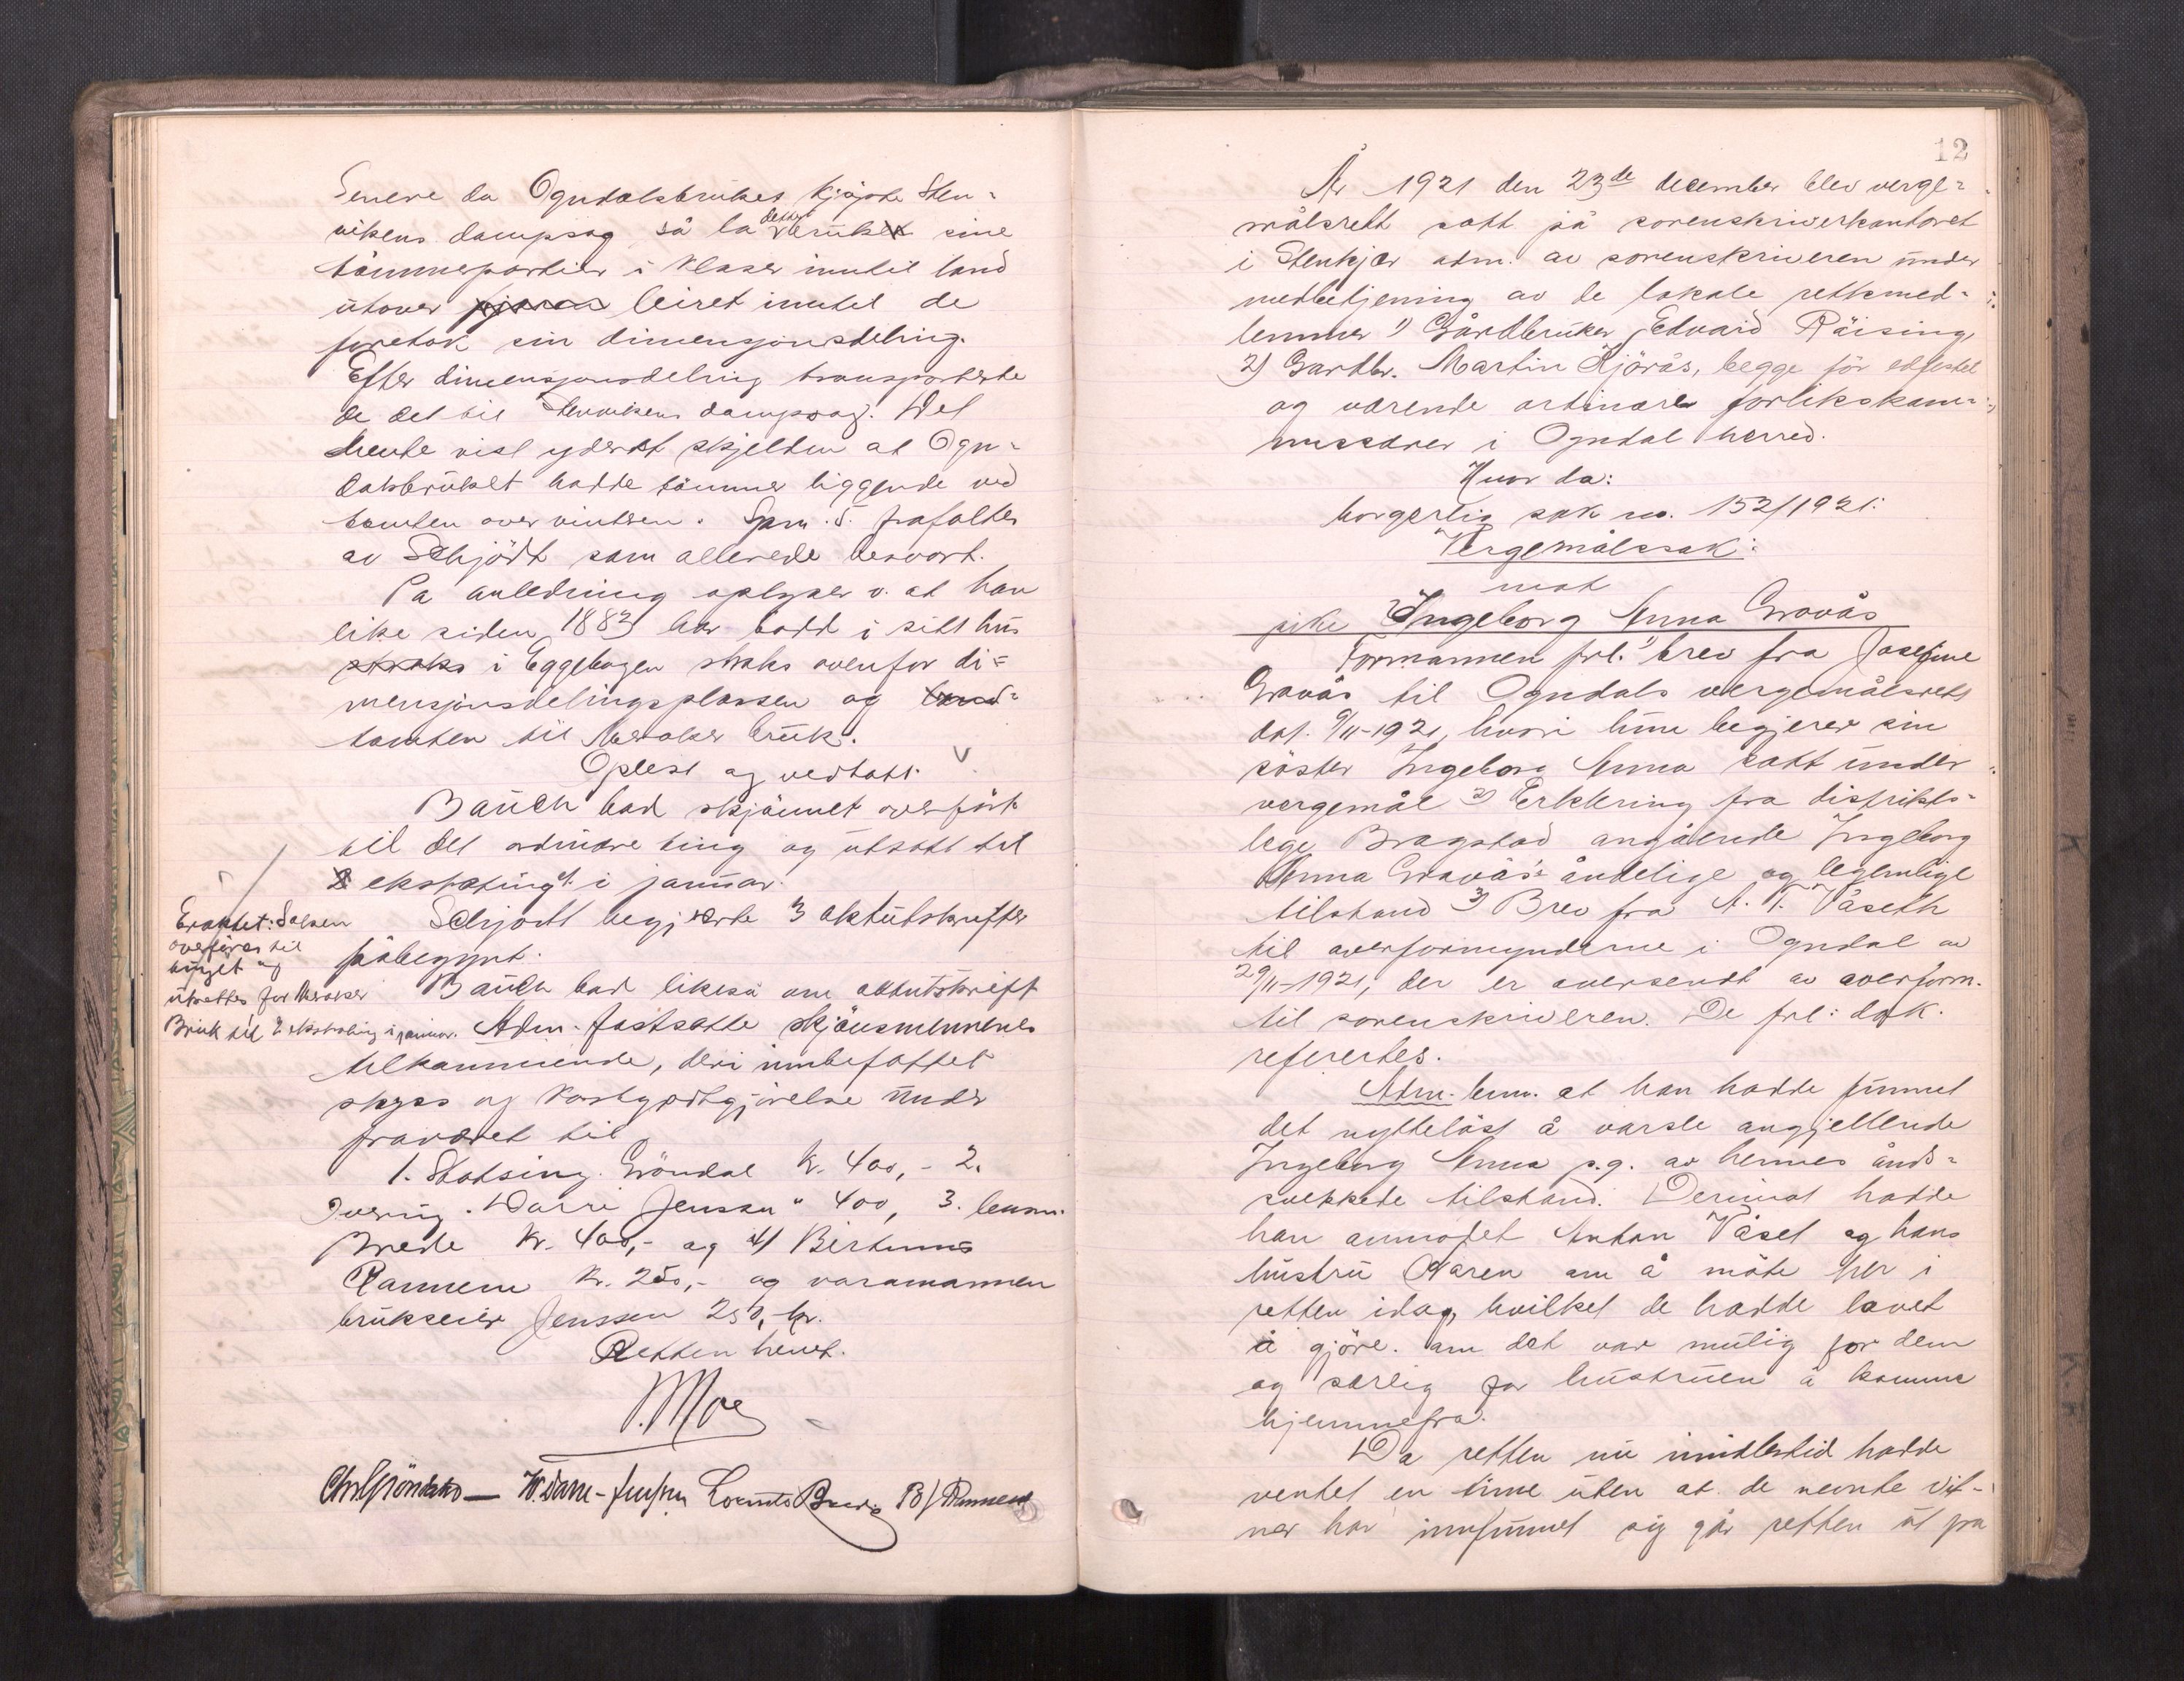 Senere da Ogndalsbrukets kjøpte Sten-
vikens dampsag så la dette bruket sine
tømmerpartier i klaser inntil land
utover leiret inntil de
foretok sin dimensjonsdeling.
Efter dimensjonsdeling transporterte
de det til Stenvikens dampsag. Det
hente vist yderst skjelden at Ogn-
dalsbruket hadde tømmer liggende ved
tomten over vintren. Spm. 5. frafaltes
av Schjödt som allerede besvart.
På anledning oplyser v. at han
like siden 1883 har bodd i sitt hus
straks i Eggebogen straks ovenfor di-
mensjonsdelingsplassen og
tomten til Meraker bruk.
Oplest og vedtatt.
Bauch bad skjönnet overfört
til det ordinære ting og utsatt til
2 ekstrating i januar.
Schjödt begjærte 3 aktutskrifter
påbegynt.
Eraktet: Saken
overföres til
tinget og
utsettes for Meraker
Bruk til 2 ekstrating i januar.
Bauch bad likeså om aktutskrift
Adm. fastsatte skjönsmennenes
tilkommende, deri innbefattet
skyss og kostgodtgjörelse under
fraværet til
1. Statsing. Gröndal Kr. 400,- 2.
Overing. Darre Jenssen " 400, 3. lensm.
Brede Kr. 400,- og 4) Birtinius
Rannem Kr. 250,- og varamannen
brukseier Jenssen 250, kr.
Retten hevet.
Moe
Chr Gröndahl — W. Darre-Jenssen Brede B/ Rannem
12
År 1921 den 23de december blev verge-
målsrett satt på sorenskriverkontoret
i Stenkjær adm. av sorenskriveren under
medbetjening av de lokale rettsmed-
lemmer 1) Gårdbruker Edvard Räising,
2) Gardbr. Martin Kjörås, begge för edfestet
og værende ordinære forlikskom-
missærer i Ogndal herred.
Hvor da:
borgerlig sak no. 152/1921:
Vergemålssak:
mot
pike Ingeborg Anna Gravås
Formannen frl. 1) brev fra Josefine
Gravås til Ogndals vergemålsrett
dat. 9/11-1921, hvori hun begjerer sin
söster Ingeborg Anna satt under
vergemål 2) Erklering fra distrikts-
lege Bragstad angående Ingeborg
Anna Gravås's åndelige og legemlige
tilstand 3) Brev fra A. K. Våseth
til overformynderne i Ogndal av
29/11-1921, der er oversendt av overform.
til sorenskriveren. De frl: dok.
referertes.
Adm. bem. at han hadde funnet
det nytteløst å varsle angjellende
Ingeborg Anna p.g. av hennes ånds-
svekkede tilstand. Derimot hadde
han anmodet Anton Våset og hans
hustru Karen om å möte her i
retten idag, hvilket de hadde lovet
å gjöre. om det var mulig for dem
og særlig for hustruen å komme
hjemmefra.
Da retten nu imidlertid hadde
ventet en time uten at de nevnte vit-
ner har innfunnet sig går retten ut fra